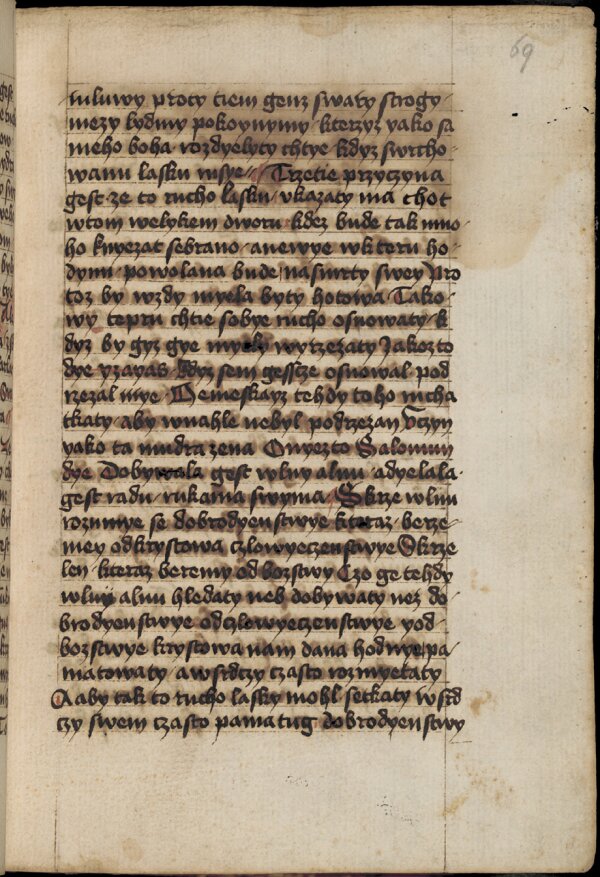 69
mluwy proty tiem genz swary strogy
mezy lydmy pokoynymy kterzyz yako sa
meho boha rozdyelyty chtye kdyz swrcho
wanu lasku rusye Trzetie przyczyna
gest ze to rucho lasku vkazaty ma chot
wtom welykem dworu kdez bude tak mno
ho knyezat sebrano a newye wkteru ho
dynu powolana bude na smrty swey Pro
toz by wzdy myela byty hotowa Tako
wy tepru chtie sobye rucho osnowaty k
dyz by gyz gye myely wyrzezaty Jakozto
dye yzayas kdyz sem gesscze osnowal pod
rzezal mye Nemeskayz tehdy toho rucha
tkaty aby wnahle nebyl podrzezan Vczyn
yako ta mudra zena Onyezto Salomun
dye Dobywala gest wlny a lnu a dyelala
gest radu rukama swyma Skrze wlnu
rozumye se dobrodyenstwye kteraz berze
mey od krystowa czlowyeczenstwye Skrze
len kteraz beremy od bozstwy Czo ge tehdy
wlnu a lnu hledaty neb dobywaty nez do
brodyenstwye od czlowyeczenstwye y od
bozstwye krystowa nam dana hodnye pa
matowaty a wsrdczy czasto rozmyetaty
A aby tak to rucho lasky mohl setkaty wsrd
czy swem czasto pamatug dobrodyenstwy